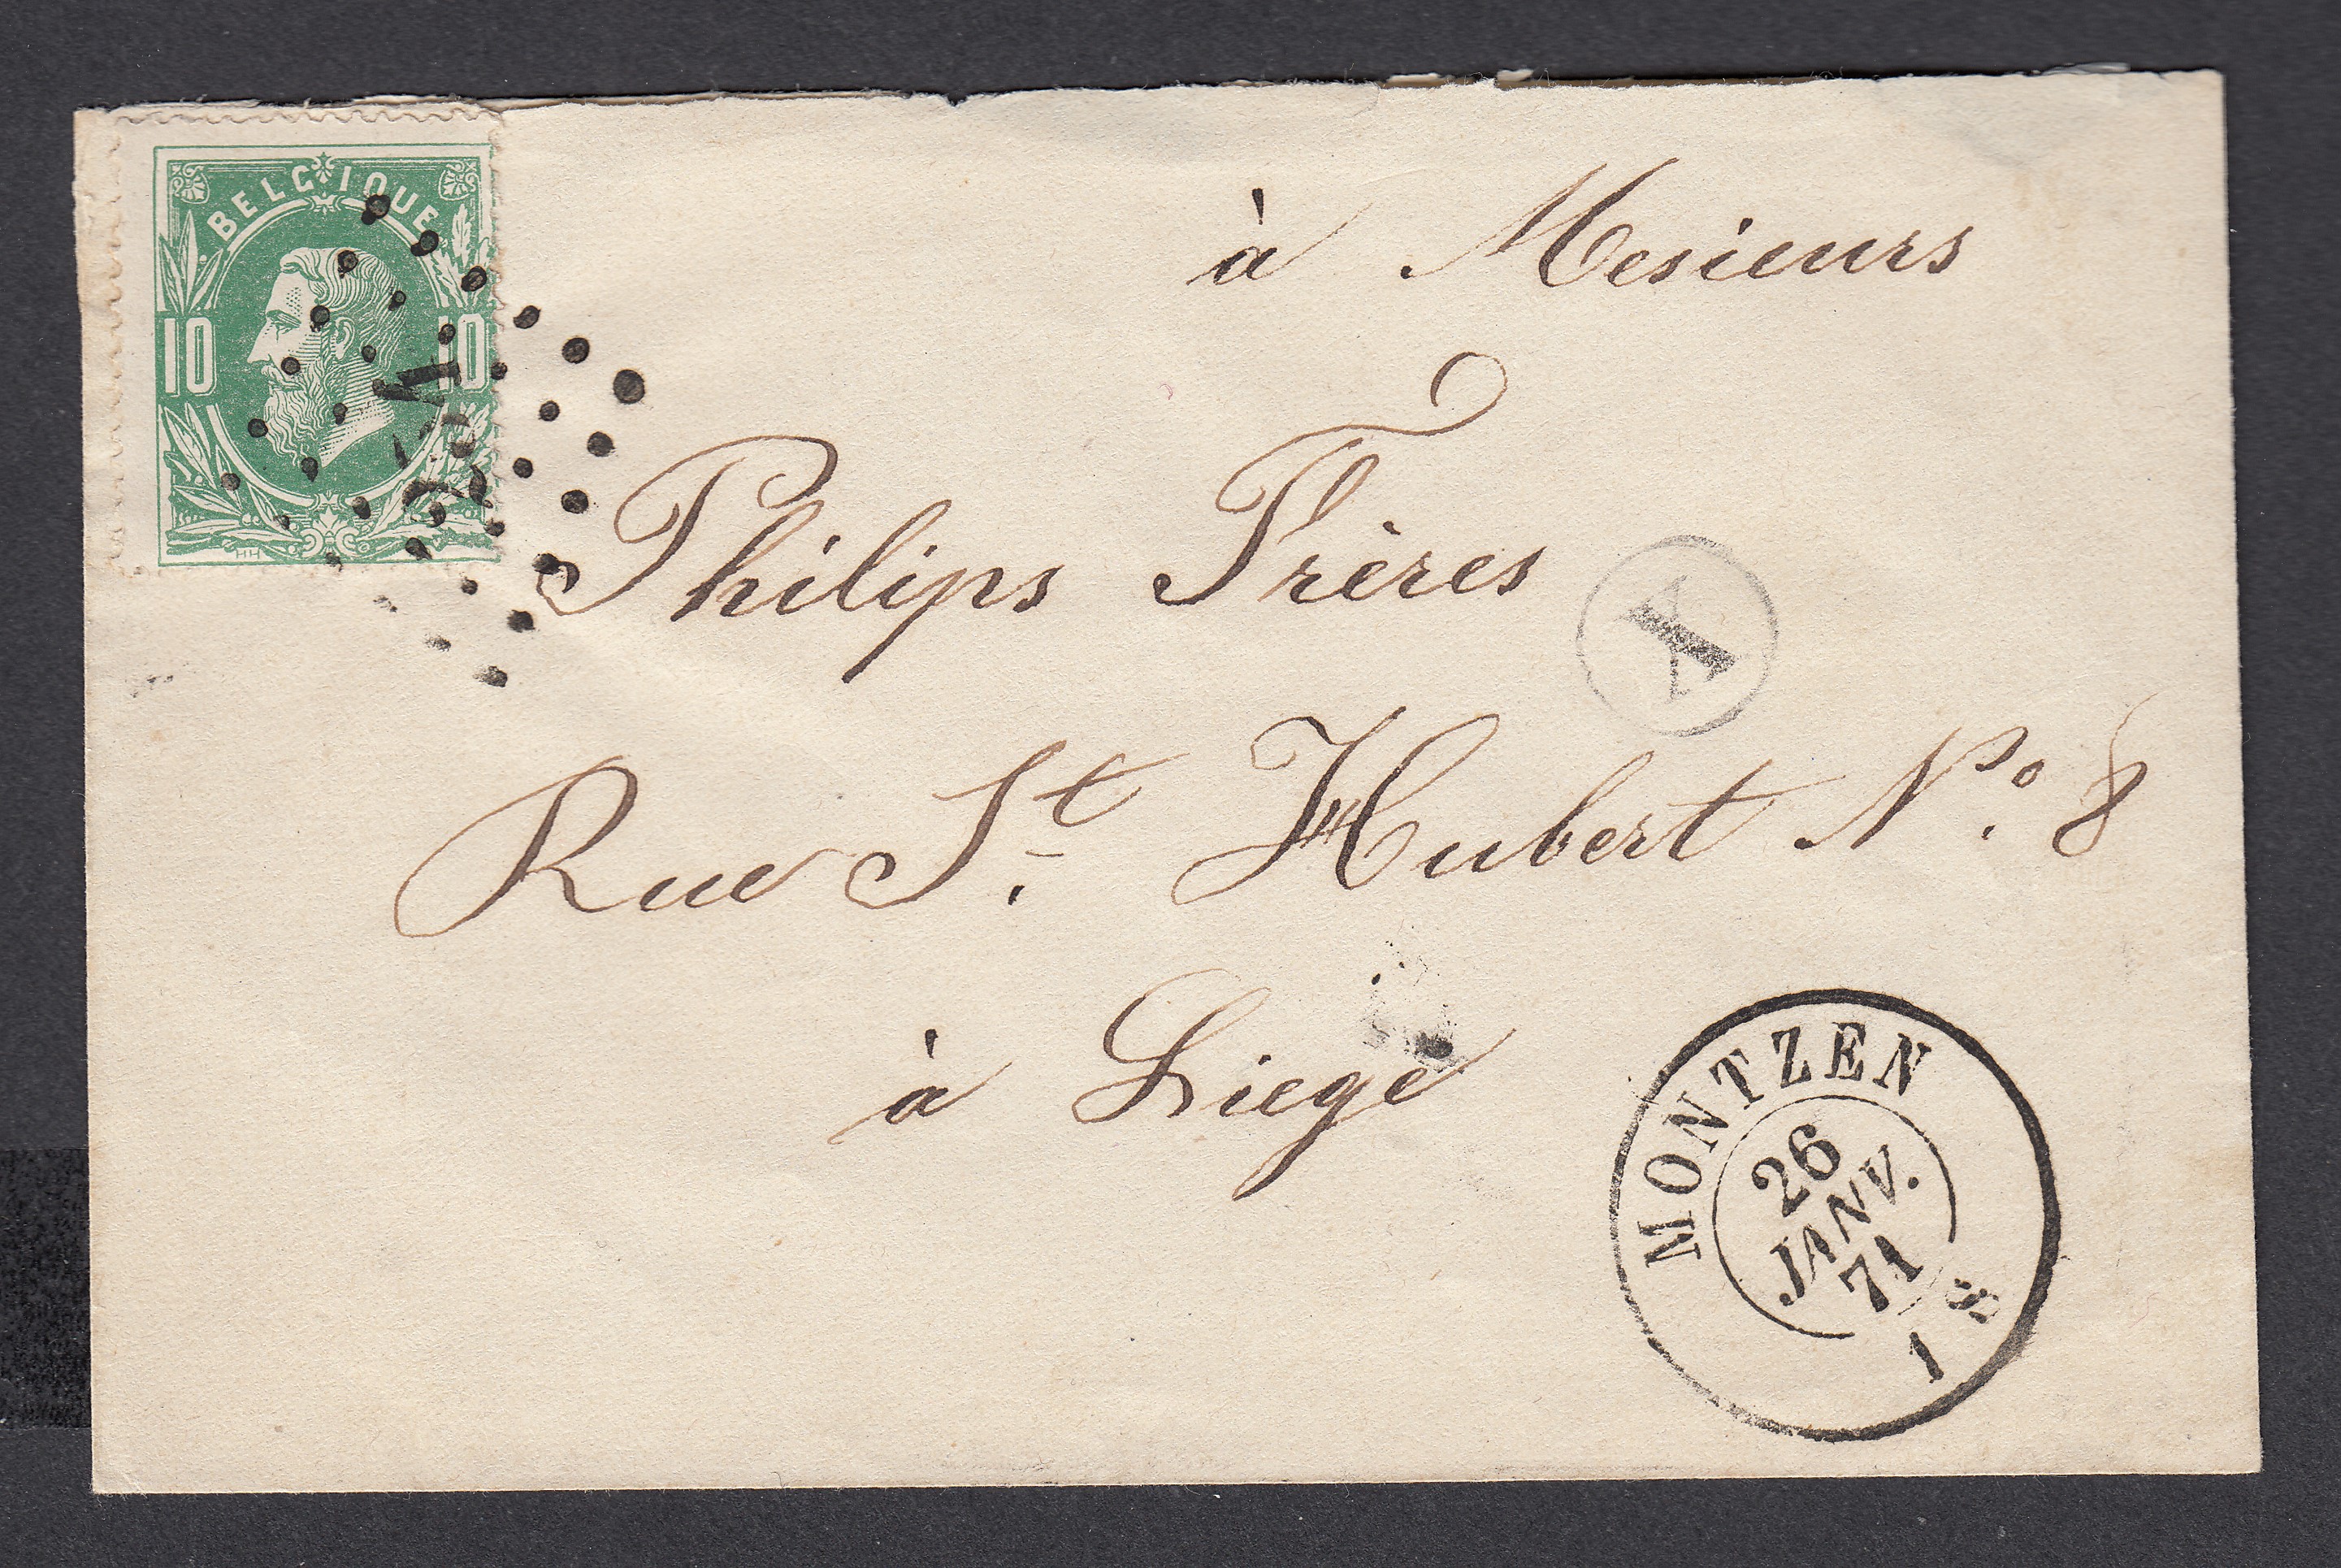 BELGIQUE
10 10
à Mesieurs
Philips Frères
Rue St. Hubert No. 8
à Liege
MONTZEN
26
JANV.
71
1 S